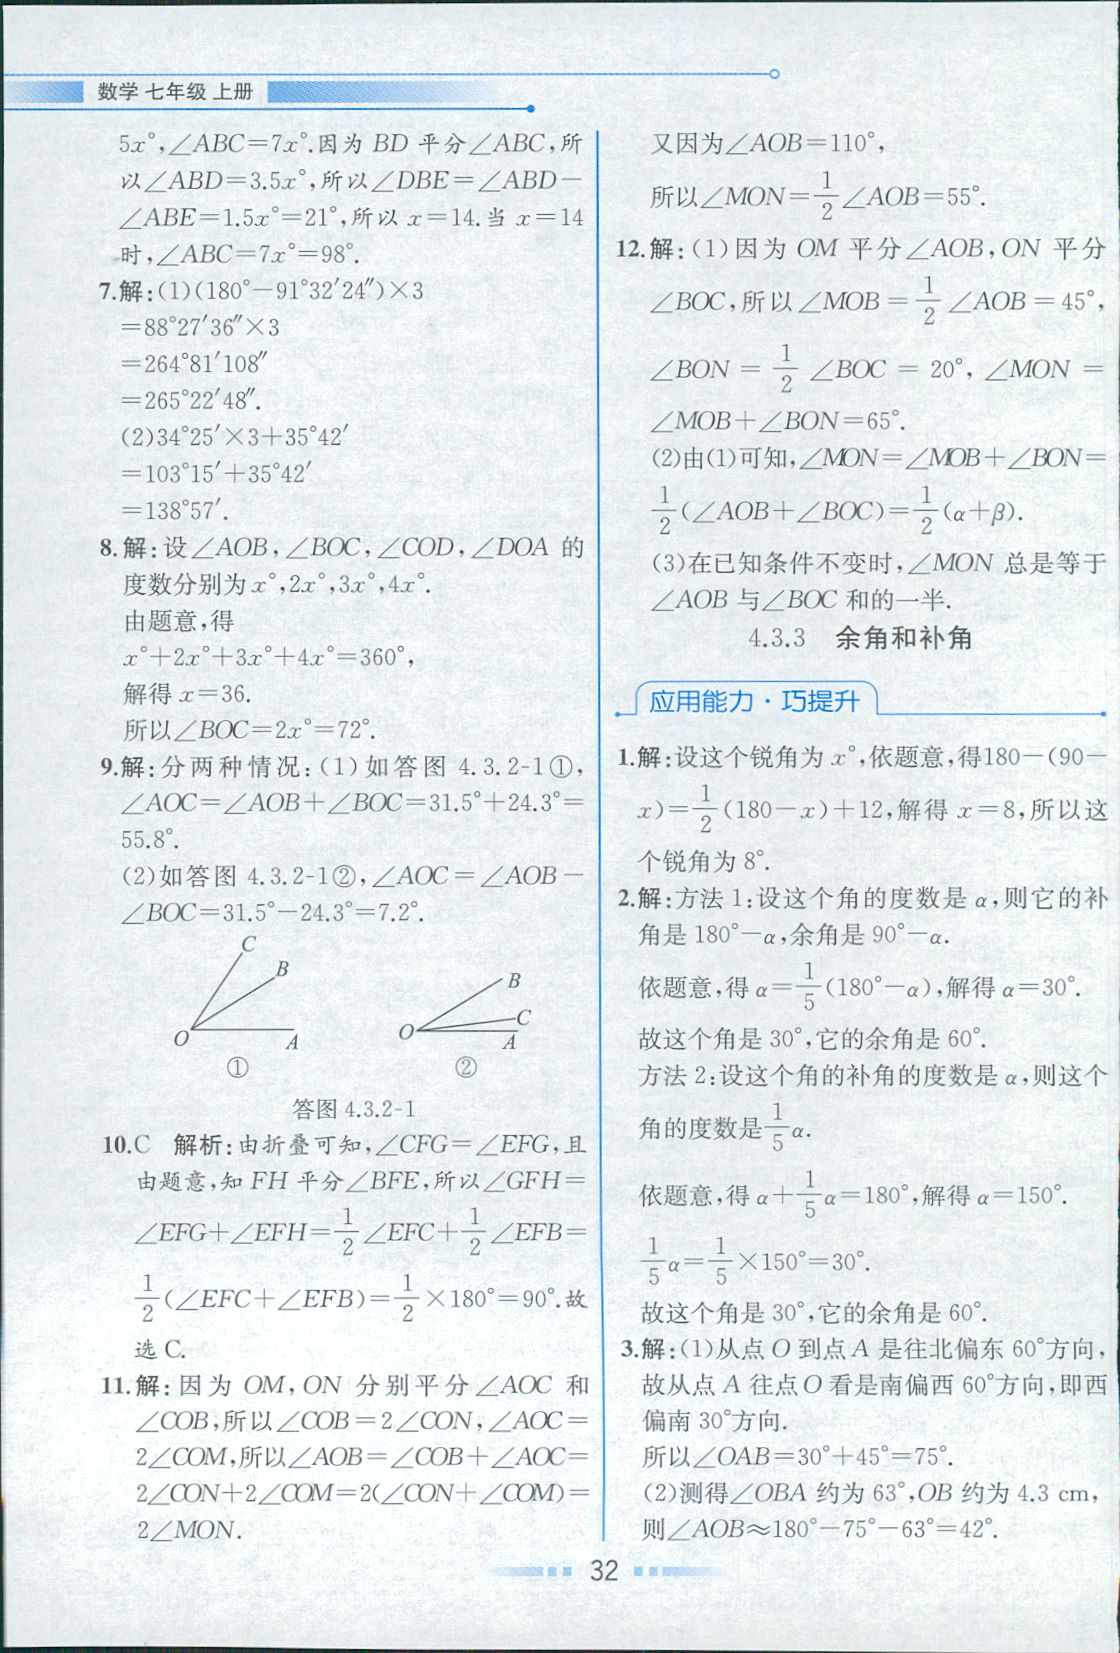 数学 七年级 上册
5x°,∠ABC=7x°.因为 BD 平分∠ABC,所
以∠ABD=3.5x°,所以∠DBE=∠ABD−
∠ABE=1.5x°=21°,所以 x=14.当 x=14
时,∠ABC=7x°=98°.
7.解:(1)(180°−91°32′24″)×3
=88°27′36″×3
=264°81′108″
=265°22′48″.
(2)34°25′×3+35°42′
=103°15′+35°42′
=138°57′.
8.解:设∠AOB,∠BOC,∠COD,∠DOA 的
度数分别为 x°,2x°,3x°,4x°.
由题意,得
x°+2x°+3x°+4x°=360°,
解得 x=36.
所以∠BOC=2x°=72°.
9.解:分两种情况:(1)如答图 4.3.2-1①,
∠AOC=∠AOB+∠BOC=31.5°+24.3°=
55.8°.
(2)如答图 4.3.2-1②,∠AOC=∠AOB−
∠BOC=31.5°−24.3°=7.2°.
C
B
O
A
①
B
C
O
A
②
答图 4.3.2-1
10.C 解析:由折叠可知,∠CFG=∠EFG,且
由题意,知 FH 平分∠BFE,所以∠GFH=
∠EFG+∠EFH=1/2∠EFC+1/2∠EFB=
1/2(∠EFC+∠EFB)=1/2×180°=90°.故
选 C.
11.解:因为 OM,ON 分别平分∠AOC 和
∠COB,所以∠COB=2∠CON,∠AOC=
2∠COM,所以∠AOB=∠COB+∠AOC=
2∠CON+2∠COM=2(∠CON+∠COM)=
2∠MON.
又因为∠AOB=110°,
所以∠MON=1/2∠AOB=55°.
12.解:(1)因为 OM 平分∠AOB,ON 平分
∠BOC,所以∠MOB=1/2∠AOB=45°,
∠BON=1/2∠BOC=20°,∠MON=
∠MOB+∠BON=65°.
(2)由(1)可知,∠MON=∠MOB+∠BON=
1/2(∠AOB+∠BOC)=1/2(α+β).
(3)在已知条件不变时,∠MON 总是等于
∠AOB 与∠BOC 和的一半.
4.3.3 余角和补角
应用能力·巧提升
1.解:设这个锐角为 x°,依题意,得180−(90−
x)=1/2(180−x)+12,解得 x=8,所以这
个锐角为 8°.
2.解:方法 1:设这个角的度数是 α,则它的补
角是 180°−α,余角是 90°−α.
依题意,得 α=1/5(180°−α),解得 α=30°.
故这个角是 30°,它的余角是 60°.
方法 2:设这个角的补角的度数是 α,则这个
角的度数是1/5α.
依题意,得 α+1/5α=180°,解得 α=150°.
1/5α=1/5×150°=30°.
故这个角是 30°,它的余角是 60°.
3.解:(1)从点 O 到点 A 是往北偏东 60°方向,
故从点 A 往点 O 看是南偏西 60°方向,即西
偏南 30°方向.
所以∠OAB=30°+45°=75°.
(2)测得∠OBA 约为 63°,OB 约为 4.3 cm,
则∠AOB≈180°−75°−63°=42°.
32